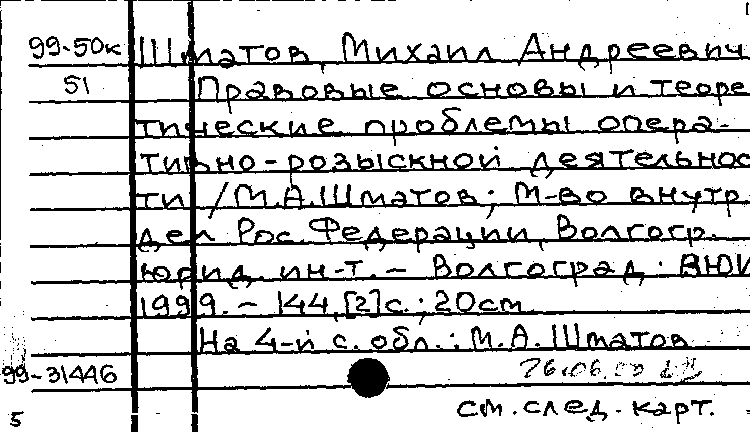 99-50к Шматов, Михаил Андреевич
51 Правовые основы и теоре
тические проблемы опера-
тивно-розыскной деятельнос
ти / М.А.Шматов; М-во внутр.
дел Рос. Федерации, Волгогр.
юрид. ин-т. - Волгоград: ВЮИ
1999. - 144,[2]с.; 20см
На 4-й с. обл.: М.А.Шматов
99-31446
см. след. карт.
5